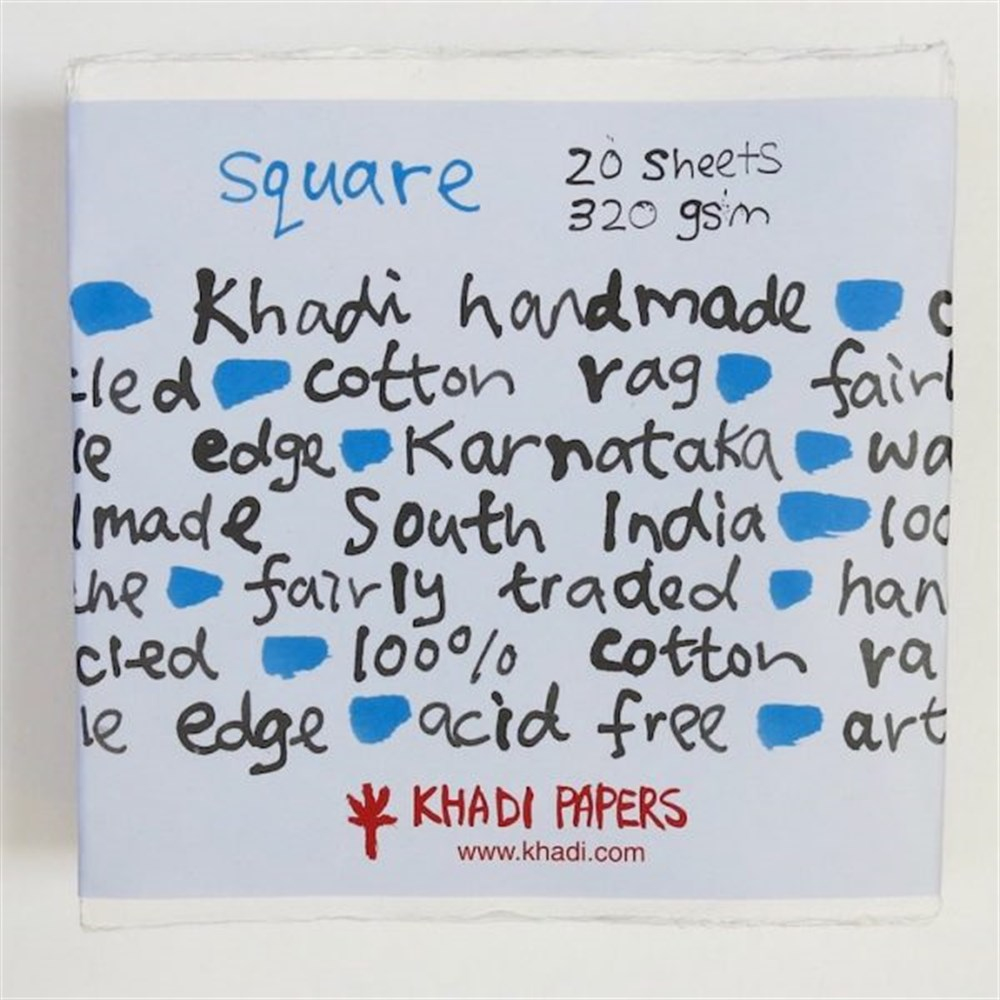 square
20 sheets
320 gsm
Khadi handmade c
cled cotton rag fairl
le edge Karnataka wa
made South India 100
the fairly traded han
cled 100% cotton ra
le edge acid free art
KHADI PAPERS
www.khadi.com